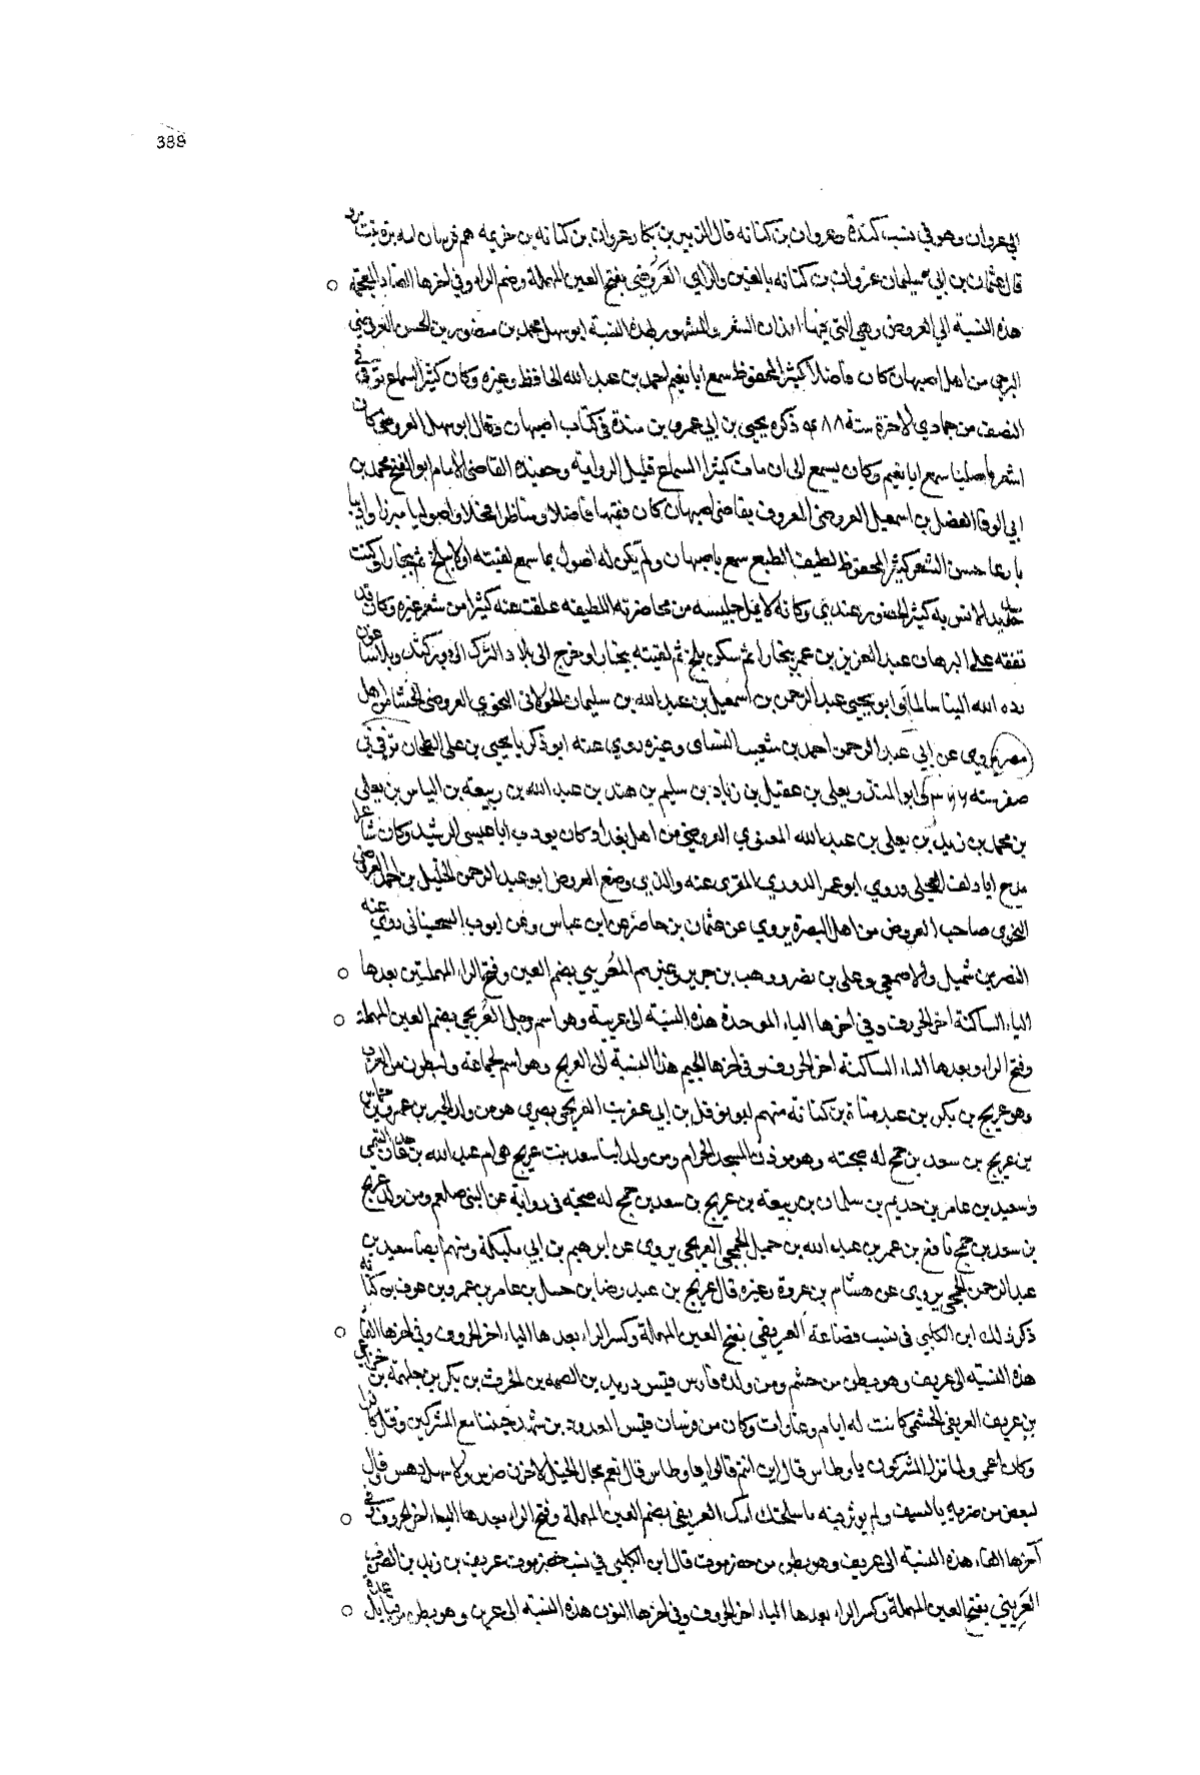 389
الي عروان وهو في نسب كندة وعروان بن كنانه قال الزبير بن بكار وعروان بن كنانه بن خزيمه هم فرسان لـه برة بنت مرد
قال عثمان بن ابي سليمان عزوان بن كنانه بالغين والزاى العَرُوضي بفتح العين المهملة وضم الراء وفي اخرها الضاد المعجمة
هذه النسبة الي العروض وهي التي بها اوزان الشعر والمشهور بهذه النسبة ابو سهل محمد بن منصور بن الحسن العروضي
البرجي من اهل اصبهان كان فاضلا كثير المحفوظ سمع ابا نعيم احمد بن عبد الله الحافظ وغيره وكان كثير السماع توفي في
النصف من جمادي الاخرة سنة ٤٨٨ ذكره يحيى بن ابي عمرو بن مندة في كتاب اصبهان وقال ابو سهل العروضي كان
سمع ابا نعيم وكان يسمع الى ان مات كثير السماع قليل الرواية وحفيده القاضى الامام ابو الفتح محمد بن
ابي الوفا الفضل بن اسمعيل العروضى المعروف بقاضى اصبهان كان فقيها فاضلا ومناظرا فحلا واصوليا مبرزا واديبا
بارعا حسن الشعر كثير المحفوظ لطيف الطبع سمع باصبهان ولم يكن له اصول بما سمع لقيته اولا ببلخ ثم ببخارا وكنت
شديد الانس به كثير الحضور عندي وكان لا يمل جليسه من محاضرته اللطيفه علقت عنه كثيرا من شعر غيره وكان قد
تفقه على البرهان عبد العزيز بن عمر ببخارا ثم سكن بلخ ثم لقيته ببخارا وخرج الى بلاد الترك وبلاساغون
رده الله الينا سالما وابو يحيى عبد الرحمن بن اسمعيل بن عبد الله بن سليمان الخولاني النحوي العروضى الخشاب من اهل
مصر يروي عن ابي عبد الرحمن احمد بن شعيب النسائى وغيره روي عنه ابو ذكريا يحيى بن على الطحان توفي في
صفر سنه ٣٦٦ وابو المنذر يعلى بن عقيل بن زياد بن سليم بن هند بن عبد الله بن ربيعه بن الياس بن يعلى
بن محمد بن زيد بن يعلى بن عبد الله العنزي العروضي من اهل بغداد كان يودب ابا عيسى الرشيد وكان شاعرا
مدح ابا دلف العجلي وروي ابو عمر الدوري المقرى عنه والذي وضع العروض ابو عبد الرحمن الخليل بن احمد العروضى
النحوى صاحب العروض من اهل البصرة يروي عن عثمان بن حاضر عن ابن عباس وعن ايوب السختيانى روي عنه
النضر بن شميل والاصمعي وعلى بن نصر ووهب بن جرير وغيرهم العُريبي بضم العين وفتح الراء المهملتين بعدها
الياء الساكنة اخر الحروف وفي اخرها الباء الموحدة هذه النسبة الى عريب وهو اسم رجل العُريجي بضم العين المهملة
وفتح الراء وبعدها الياء الساكنة اخر الحروف وفي اخرها الجيم هذا النسبة الى العريج وهو اسم لجماعة ولبطون من العرب
وهو عريج بن بكر بن عبد مناة بن كنانه منهم ابو نوفل بن ابي عقرب العريجي بصري هو من ولد
بن عريج بن سعد بن جمح له صحبته وهو موذن المسجد الحرام ومن ولد بنت عريج هي ام عبد الله بن جدعان التيمى
وسعيد بن عامر بن حذيم بن سلمان بن ربيعة بن عريج بن سعد بن جمح له صحبة في رواية عن النبى صلعم ومن ولد عريج
بن سعد بن جمح نافع بن عمر بن عبد الله بن جميل الجمحي العريجي يروي عن ابن ابي مليكة ومنهم ايضا سعيد بن
عبد الرحمن الجمحي يروي عن هشام بن عروة وغيره قال عريج بن عبد رضا بن حسل بن عامر بن عمرو بن عوف بن كنانه
ذكر ذلك ابن الكلبي في نسب قضاعة العريفي بفتح العين المهملة وكسر الراء بعدها الياء اخر الحروف وفي اخرها الفاء
هذه النسبة الى عريف وهو بطن من جشم ومن ولده فارس قيس دريد بن الصمه بن الحرث بن بكر بن جلهمة بن
بن عريف العريفي الجشمي كانت له ايام وغارات وكان من فرسان قيس شهد حنينا مع المشركين وقتل كافرا
وكان اعمى ولما نزل المشركون باوطاس قال اين انتم قالوا باوطاس قال نعم مجال الخيل لا حزن ضرس ولا سهل دهس قال
لبعض من ضربه بالسيف ولم يوثر فيه ما سلحتك امك العريفي بضم العين المهملة وفتح الراء بعدها الياء اخر الحروف وفي
آخرها الفاء هذه النسبة الى عريف وهو بطن من حضرموت قال ابن الكلبي في نسب حضرموت عريف بن زيد بن
العَريني بفتح العين المهملة وكسر الراء بعدها الياء اخر الحروف وفي اخرها النون هذه النسبة الى عرين وهو بطن من قبايل عدة